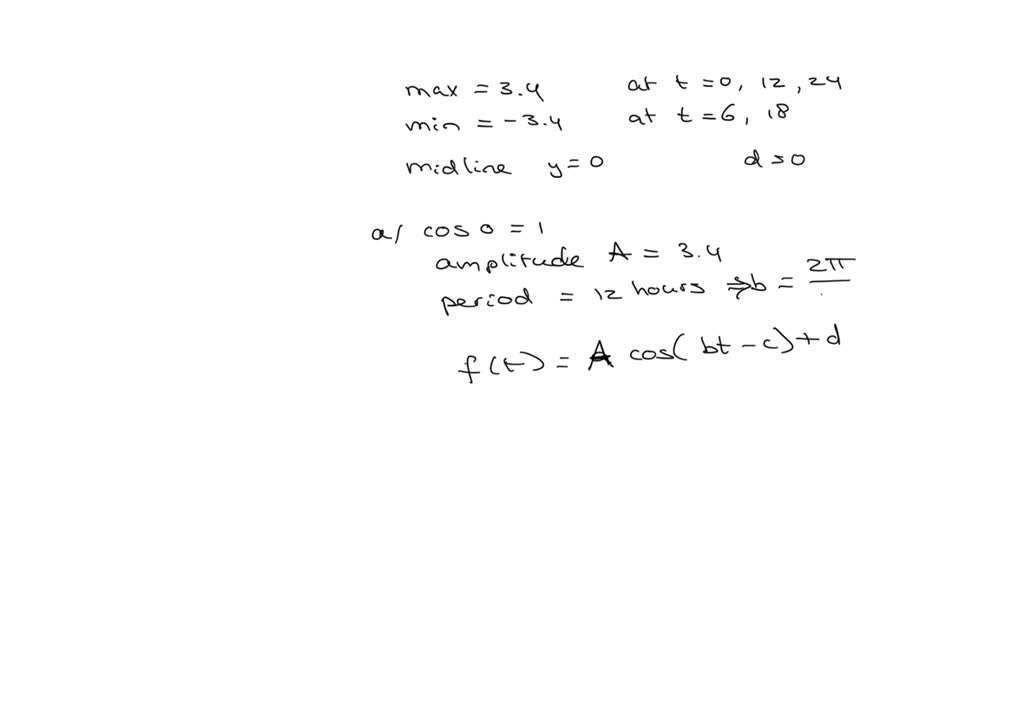 max = 3.4 at t = 0, 12, 24
min = -3.4 at t = 6, 18
midline y = 0 d = 0
a/ cos 0 = 1
amplitude A = 3.4
period = 12 hours ⇒ b = 2π/
f(t) = A cos(bt - c) + d